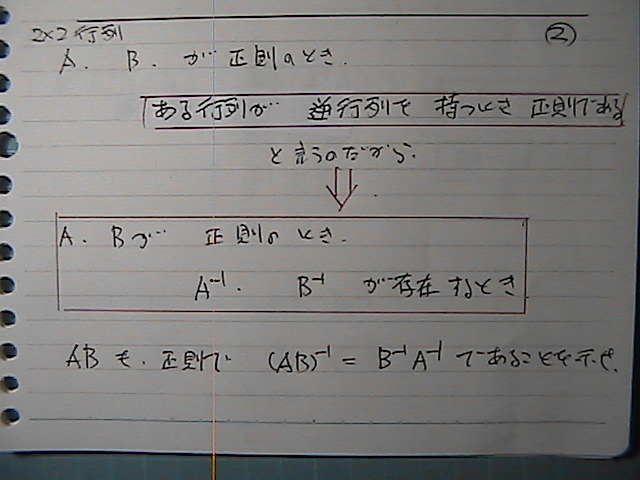 2×2行列
②
A. B. が 正則のとき.
ある行列が 逆行列を 持つとき 正則である
と言うのだから.
⇓
A. Bが 正則のとき.
A⁻¹. B⁻¹ が存在するとき
ABも. 正則で (AB)⁻¹ = B⁻¹A⁻¹ であることを示せ.